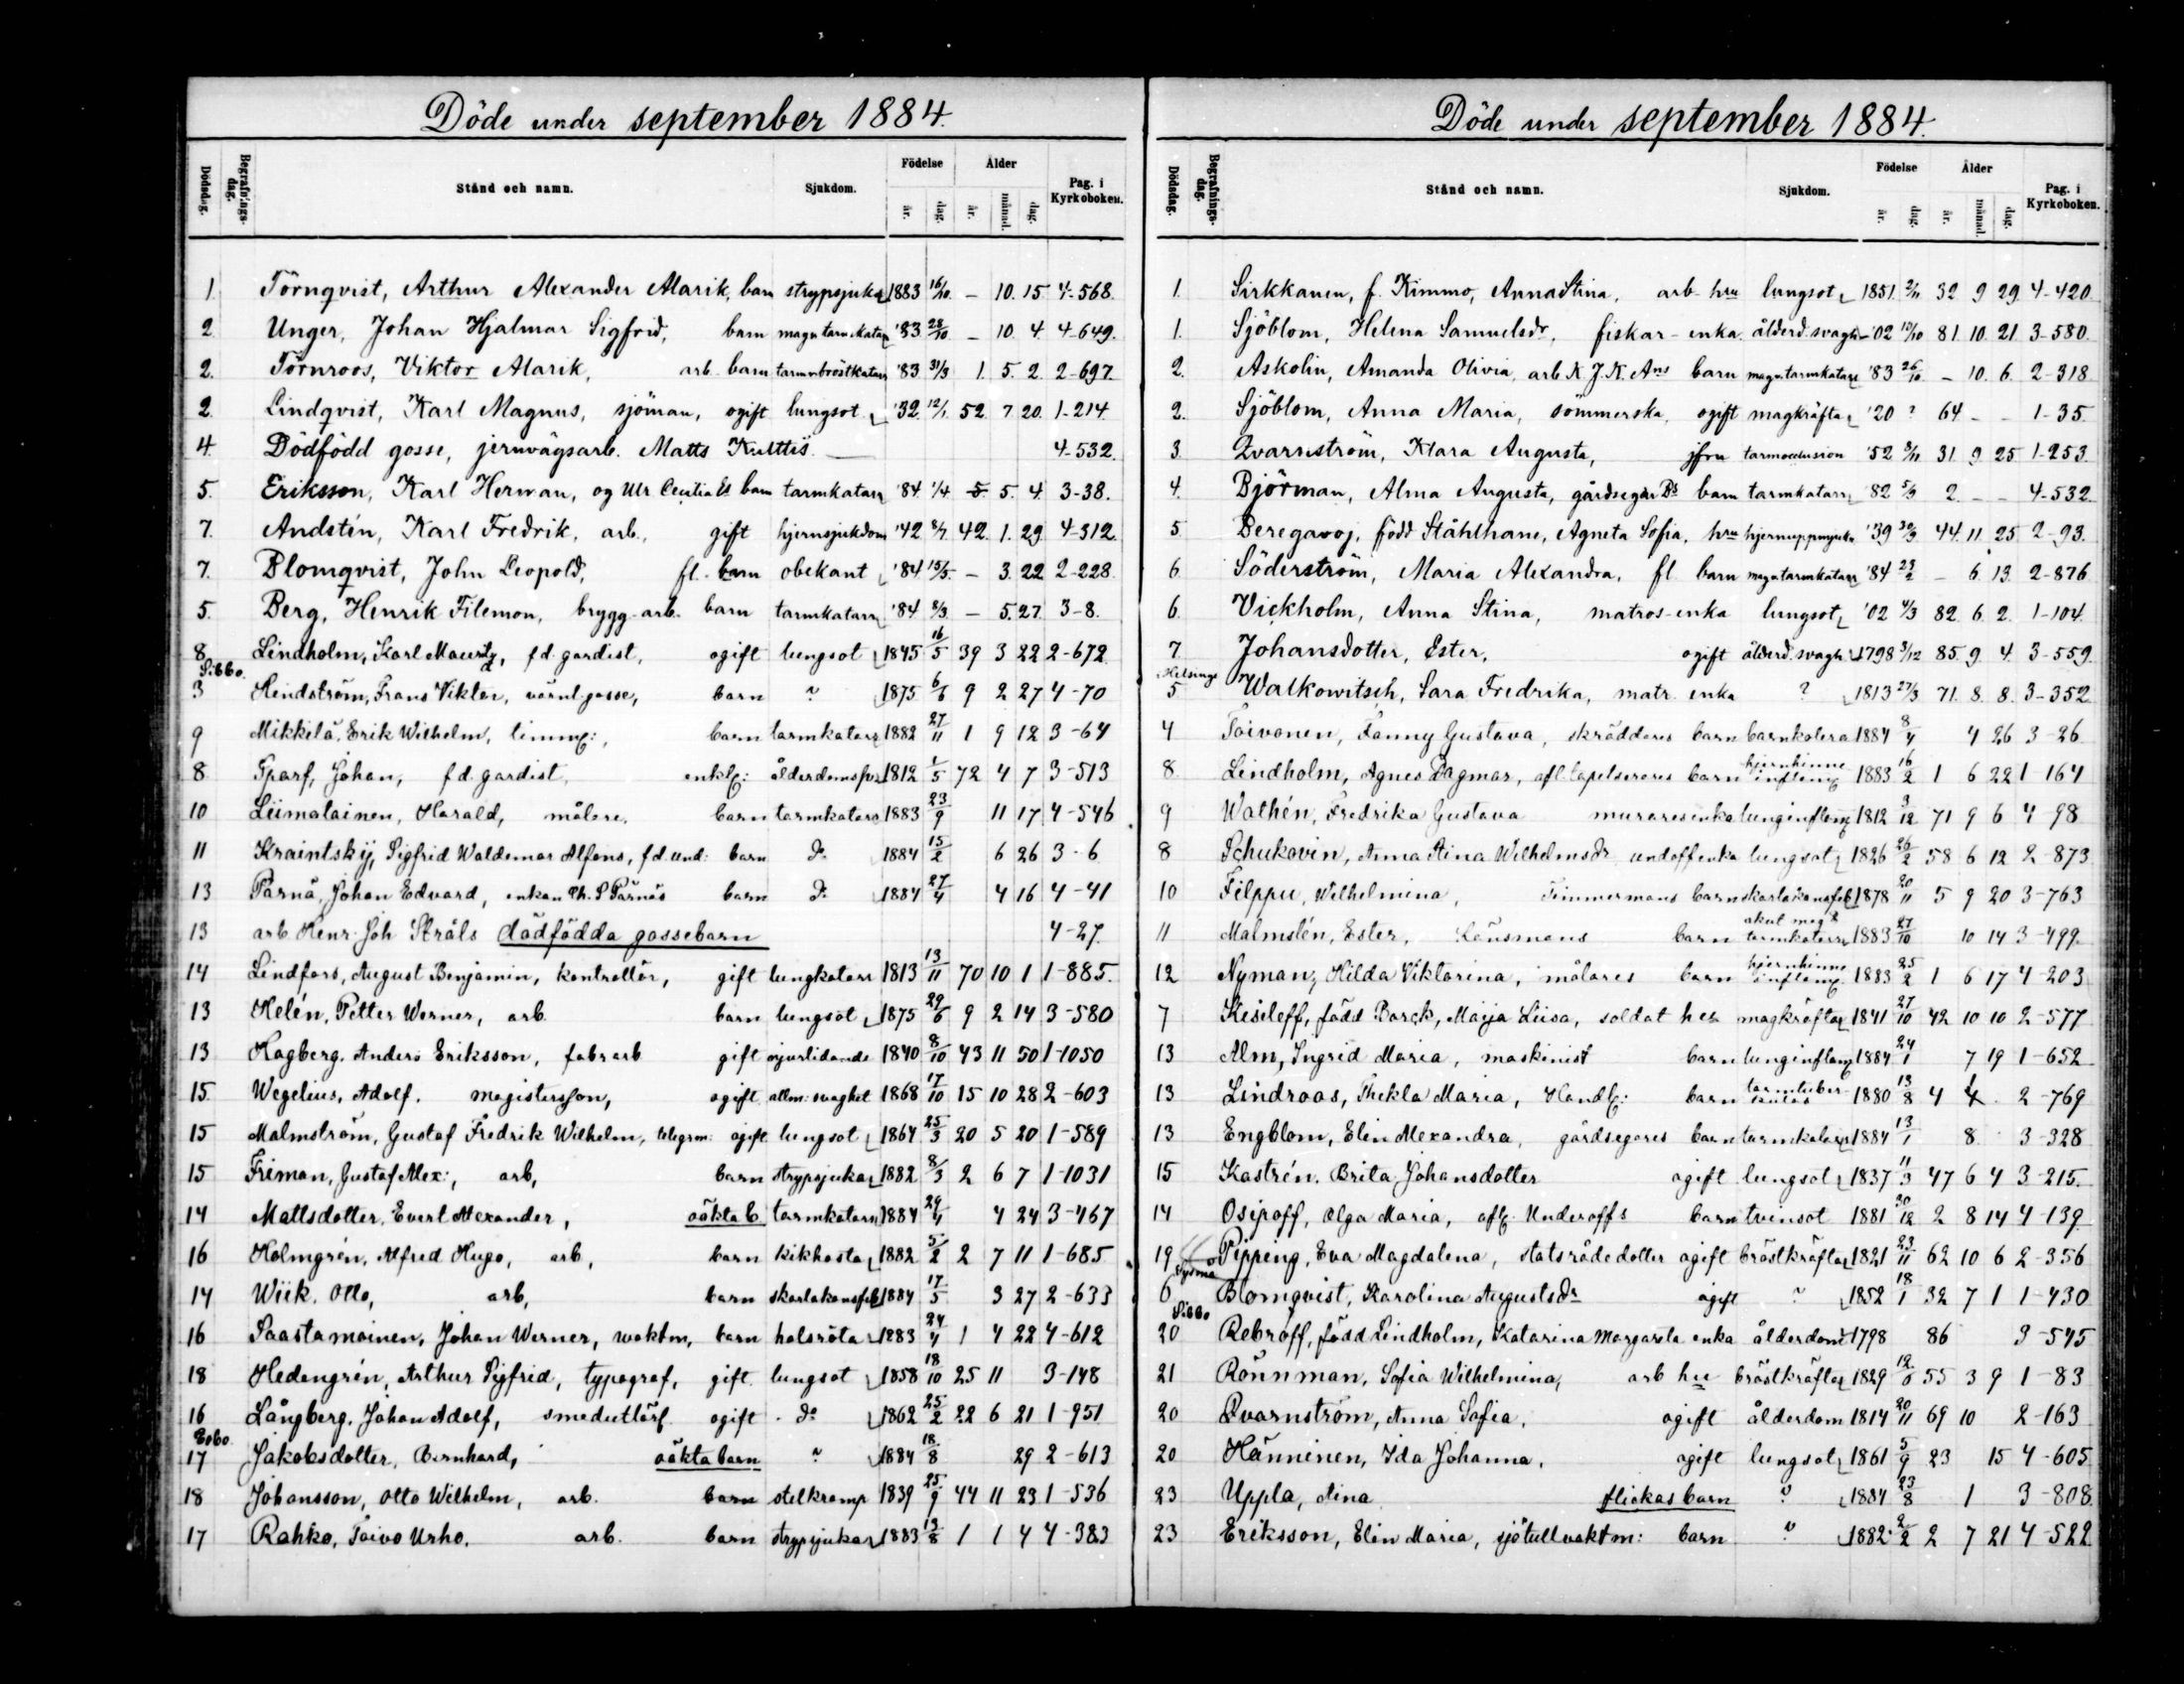 Döde under september 1884.
Dödsdag. Begrafnings-dag. Stånd och namn. Sjukdom. Födelse år. dag. Ålder år. månad. dag. Pag. i Kyrkoboken.
1. Törnqvist, Arthur Alexander Alarik, barn strypsjuka 1883 16/10 – 10. 15. 4-568.
2 Unger, Johan Hjalmar Sigfrid, barn magtarmkatarr '83 28/10 – 10. 4. 4-649.
2. Törnroos, Viktor Alarik, arb. barn '83 31/3 1. 5. 2. 2-697.
2. Lindqvist, Karl Magnus, sjöman, ogift lungsot '32 12/1 52. 7 20. 1-214
4. Dödfödd gosse, jernvägsarb. Matts Kulttis — 4-532.
5. Eriksson, Karl Herman, barn tarmkatarr '84 1/4 5. 4. 3-38.
7. Andstén, Karl Fredrik, arb., gift hjernsjukdom '42 8/7 42. 1. 29 4-312.
7. Blomqvist, John Leopold, fl. barn obekant '84 15/5 – 3. 22 2-228.
5. Berg, Henrik Filemon, brygg-arb. barn tarmkatarr '84 8/3 – 5. 27. 3-8.
8 Lindholm, Karl Mauritz, f d. gardist, ogift lungsot 1845 16/5 39 3 22 2-672
Sibbo.
3 Hindström, Frans Viktor, värnl. gosse, barn ? 1875 6/6 9 2 27 4-70
9 Mikkelä, Erik Wilhelm, timmf:, barn tarmkatarr 1882 27/11 1 9 12 3-64
8 Sparf, Johan, f d. gardist, enklg: 1812 1/5 72 4 7 3-513
10 Liimalainen, Harald, målare, barn tarmkatarr 1883 23/9 11 17 4-546
11 Kraintskij, Sigfrid Waldemar Alfons, f d. und: barn do 1884 15/2 6 26 3-6
13 Pärnä, Johan Edvard, enkan Th. S Pärnäs barn do 1884 27/4 4 16 4-41
13 arb. Henr. Joh Stråls dödfödda gossebarn 4-27.
14 Lindfors, August Benjamin, kontrollör, gift lungkatarr 1813 13/11 70 10 1 1-885.
13 Helén, Petter Werner, arb. barn lungsot 1875 29/6 9 2 14 3-580
13 Hagberg, Anders Eriksson, fabr arb gift njurlidande 1840 8/10 43 11 50 1-1050
15. Wegelius, Adolf, magistersson, ogift allm: svaghet 1868 17/10 15 10 28 2-603
15 Malmström, Gustaf Fredrik Wilhelm, telegrm: ogift lungsot 1864 25/3 20 5 20 1-589
15 Friman, Gustaf Alex:, arb, barn strypsjuka 1882 8/3 2 6 7 1-1031
14 Mattsdotter, Evert Alexander, oäkta b. tarmkatarr 1884 29/4 4 24 3-467
16 Holmgrén, Alfred Hugo, arb, barn kikhosta 1882 5/2 2 7 11 1-685
14 Wiik, Otto, arb, barn skarlakansfeb 1884 17/5 3 27 2-633
16 Saastamoinen, Johan Werner, vaktm, barn halsröta 1883 24/4 1 4 22 4-612
18 Hedengrén, Arthur Sigfrid, typograf, gift lungsot 1858 18/10 25 11 3-148
16 Långberg, Johan Adolf, smedutlärf ogift do 1862 25/2 22 6 21 1-951
Esbo
17 Jakobsdotter, Bernhard, oäkta barn ? 1884 18/8 29 2-613
18 Johansson, Otto Wilhelm, arb. barn stelkramp 1839 25/9 44 11 23 1-536
17 Rahko, Toivo Urho, arb. barn strypsjuka 1883 13/8 1 1 4 4-383
Döde under september 1884.
Dödsdag. Begrafnings-dag. Stånd och namn. Sjukdom. Födelse år. dag. Ålder år. månad. dag. Pag. i Kyrkoboken.
1. Sirkkanen, f. Kimmo, Anna Stina, arb. hru lungsot 1851 2/11 32 9 29 4-420.
1. Sjöblom, Helena Samuelsdr, fiskar-enka ålderd. svagh '02 10/10 81. 10. 21. 3-580.
2. Askolin, Amanda Olivia, arb. K. J. K. Ans barn magtarmkatarr '83 26/10 – 10. 6. 2-318
2. Sjöblom, Anna Maria, sömmerska, ogift magkräfta '20 ? 64 – – 1-35.
3. Qvarnström, Klara Augusta, jfru '52 8/11 31. 9 25 1-253.
4. Björman, Alma Augusta, gårdsegar Bs barn tarmkatarr '82 5/9 2 – – 4-532.
5 Beregavoj, född Ståhlhane, Agneta Sofia, hru '39 30/9 44. 11. 25 2-93.
6. Söderström, Maria Alexandra, fl barn magtarmkatarr '84 23/2 – 6. 13. 2-876
6. Vickholm, Anna Stina, matros-enka lungsot '02 4/3 82. 6. 2. 1-104.
7. Johansdotter, Ester, ogift ålderd. svagh 1798 3/12 85. 9 4. 3-559.
Helsinge
5 Walkowitsch, Sara Fredrika, matr. enka ? 1813 27/3 71. 8. 8. 3-352
4 Toivonen, Fanny Gustava, skräddares barn barnkolera 1884 8/4 4 26 3-26
8. Lindholm, Agnes Dagmar, afl. tapetserares barn hjernhinne inflamg 1883 16/2 1 6 22 1-164
9 Wathén, Fredrika Gustava murares enka lunginflamg 1812 3/12 71 9 6 4 98
8 Schukovin, Anna Stina Wilhelmsdr undoff enka lungsot 1826 26/2 58 6 12 2-873
10 Filppu, Wilhelmina, Timmermans barn skarlakansfeb 1878 20/11 5 9 20 3-763
11 Malmstén, Ester, Länsmans barn akut mag & tarmkatarr 1883 27/10 10 14 3-499.
12 Nyman, Hilda Viktorina, målares barn hjernhinne inflamg 1883 25/2 1 6 17 4-203
7 Kiseleff, född Borck, Maija Liisa, soldat hu magkräfta 1841 27/10 42 10 10 2-577
13 Alm, Ingrid Maria, maskinist barn lunginflamg 1884 24/1 7 19 1-652
13 Lindroos, Thekla Maria, Handlg: barn 1880 13/8 4 2-769
13 Engblom, Elin Alexandra, gårdsegares barn tarmkatarr 1884 13/1 8 3-328
15 Kastrén, Brita Johansdotter ogift lungsot 1837 11/3 47 6 4 3-215.
14 Osipoff, Olga Maria, afl. Underoffs barn tvinsot 1881 30/12 2 8 14 4-139
19 Pippeng, Eva Magdalena, statsrådsdotter ogift bröstkräfta 1821 23/11 62 10 6 2-356
Sysmä
6 Blomqvist, Karolina Augustsdr ogift ? 1852 18/1 32 7 1 1-430
Sibbo
20 Rebroff, född Lindholm, Katarina Margareta enka ålderdom 1798 86 3-545
21 Rönnman, Sofia Wilhelmina, arb hu bröstkräfta 1829 12/6 55 3 9 1-83
20 Qvarnström, Anna Sofia, ogift ålderdom 1814 20/11 69 10 2-163
20 Hänninen, Ida Johanna, ogift lungsot 1861 5/9 23 15 4-605
23 Uppla, Aina flickas barn ? 1884 23/8 1 3-808.
23 Eriksson, Elin Maria, sjötullvaktm: barn ? 1882 2/2 2 7 21 4-522